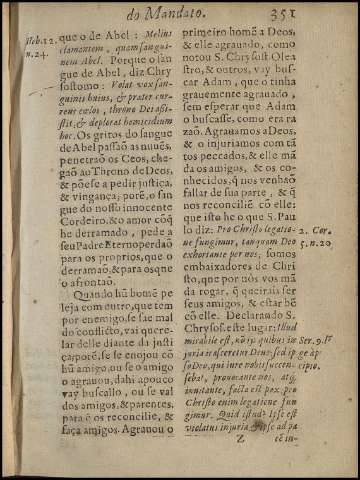 do Mandato. 351
Heb. 12.
n. 24.
que o de Abel: Melius
clamantem, quam sangui-
nem Abel. Porque o san
gue de Abel, diz Chry
sostomo: Volat vox san-
guinis huius, & præter cur-
rens cælos, throno Dei assi-
stit, & deplorat homicidium
hoc. Os gritos do sangue
de Abel passaõ as nuuẽs,
penetraõ os Ceos, che-
gaõ ao Throno de Deos,
& põese a pedir justiça,
& vingança; porẽ, o san
gue do nosso innocente
Cordeiro, & o amor cõq̃
he derramado, pede a
seu Padre Eterno perdaõ
para os proprios, que o
derramaõ, & para os que
o afrontaõ.
Quando hũ homẽ pe
leja com outro, que tem
por enemigo, se sae mal
do conflicto, vai quere-
lar delle diante da justi
ça; porẽ, se se enojou cõ
hũ amigo, ou se o amigo
o agrauou, dahi a pouco
vay buscallo, ou se val
dos amigos, & parentes,
para q̃ os reconcilie, &
faça amigos. Agrauou o
primeiro homẽ a Deos,
& elle agrauado, como
notou S. Chrysost. Olea
stro, & outros, vay bus-
car Adam, que o tinha
grauemente agrauado,
sem esperar que Adam
o buscasse, como era ra
zaõ. Agrauamos a Deos,
& o injuriamos com tã
tos peccados, & elle mã
da os amigos, & os co-
nhecidos, q̃ nos venhaõ
fallar de sua parte, & q̃
nos reconciliẽ cõ elle:
que isto he o que S. Pau
lo diz: Pro Christo legatio-
ne fungimur, tanquam Deo
exhortante per nos; somos
embaixadores de Chri
sto, que por nòs vos mã
da rogar, q̃ queirais ser
seus amigos, & estar bẽ
cõ elle. Declarando S.
Chrysost. este lugar: Illud
mirabile est, nõ ip quibus in
juria irasceretur Deus; sed ip ge ap
so Deo, qui iure nobis succen-
sebat, provocante nos, atq;
invitante, facta est pax pro
Christo enim legatione fun
gimur. Quid istud? Ipse est
violatus injuria, & ipse ad pa
2. Cor.
5. n. 20
Ser. 9.
Z cẽ in-